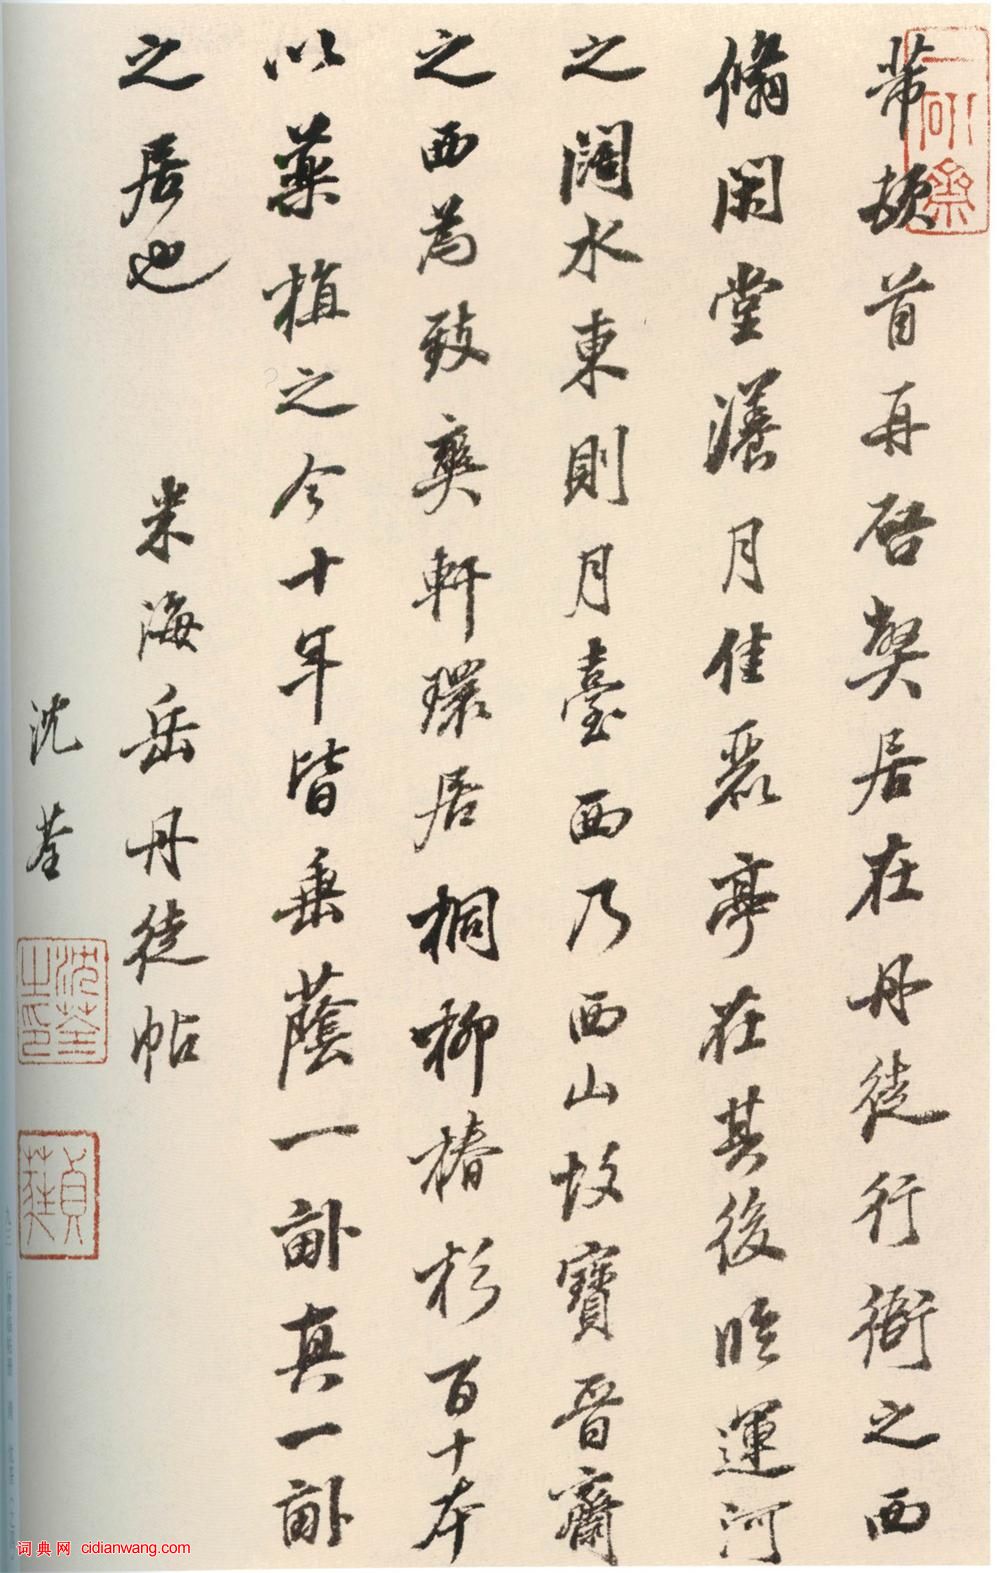 芾頓首再啓弊居在丹徒行衙之西
翛閑堂漾月佳麗亭在其後臨運河
之闊水東則月臺西乃西山故寶晉齋
之西為致爽軒環居桐柳椿杉百十本
以藥植之今十年皆垂蔭一畝真一畝
之居也
米海岳丹徒帖
沈荃
一研齋
沈荃之印
詞典网 cidianwang.com